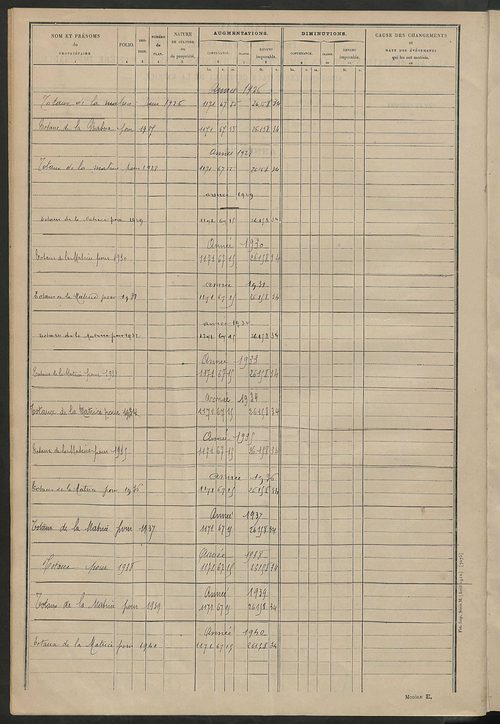 NOM ET PRÉNOMS du PROPRIÉTAIRE
FOLIO.
NUMÉRO du PLAN.
NATURE DE CULTURE ou de propriété.
AUGMENTATIONS.
CONTENANCE.
CLASSE.
REVENU imposable.
DIMINUTIONS.
CONTENANCE.
CLASSE.
REVENU imposable.
CAUSE DES CHANGEMENTS ET DATE DES ÉVÉNEMENTS qui les ont motivés.
Année 1926
Totaux de la matrice pour 1926 1171 67 15 26158 34
Totaux de la Matrice pour 1927 1171 67 15 26158 34
Année 1928
Totaux de la matrice pour 1928 1171 67 15 26158 34
année 1929
Totaux de la Matrice pour 1929 1171 67 15 26158 34
Année 1930
Totaux de la Matrice pour 1930 1171 67 15 26158 34
année 1931
Totaux de la Matrice pour 1931 1171 67 15 26158 34
année 1932
Totaux de la Matrice pour 1932 1171 67 15 26158 34
Année 1933
Totaux de la Matrice pour 1933 1171 67 15 26158 34
Année 1934
Totaux de la Matrice pour 1934 1171 67 15 26158 34
Année 1935
Totaux de la Matrice pour 1935 1171 67 15 26158 34
Année 1936
Totaux de la Matrice pour 1936 1171 67 15 26158 34
Année 1937
Totaux de la Matrice pour 1937 1171 67 15 26158 34
Année 1938
Totaux pour 1938 1171 67 15 26158 34
Année 1939
Totaux de la Matrice pour 1939 1171 67 15 26158 34
Année 1940
Totaux de la Matrice pour 1940 1171 67 15 26158 34
MODÈLE E.